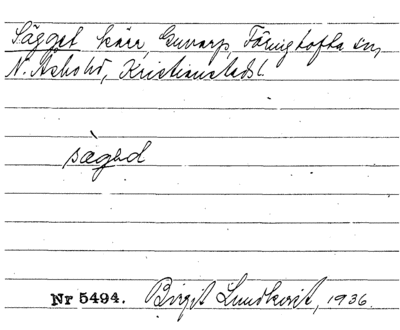 Sägget kärr, Gunarp, Färingtofta sn,
N. Åsbohd, Kristianstads l.
sàgəd
Nr 5494. Birgit Lundkvist, 1936.